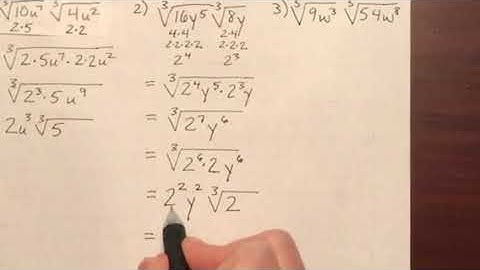 ∛10u⁷ ∛4u²
2·5 2·2
∛2·5u⁷·2·2u²
∛2³·5u⁹
2u³ ∛5
2) ∛16y⁵ ∛8y
4·4 2·4
2·2·2·2 2·2·2
2⁴ 2³
= ∛2⁴y⁵·2³y
= ∛2⁷y⁶
= ∛2⁶·2y⁶
= 2²y² ∛2
=
3) ∛9w³ ∛54w⁸